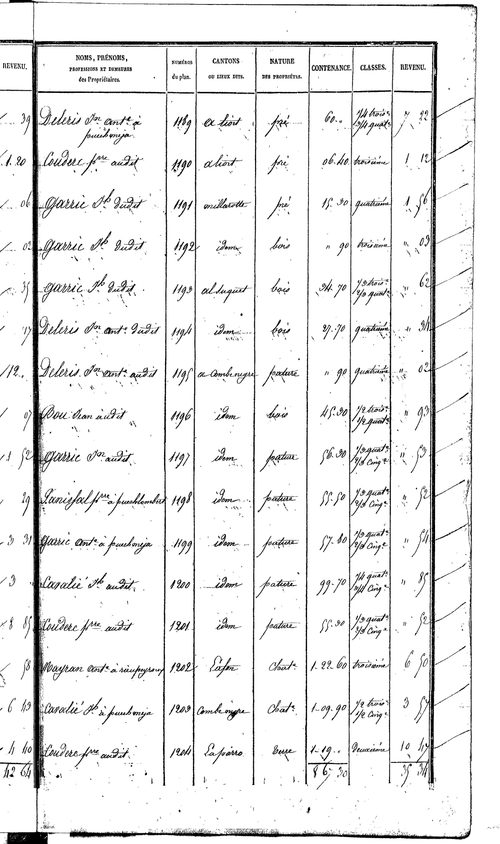 REVENU. NOMS, PRÉNOMS, NUMÉROS CANTONS NATURE CONTENANCE. CLASSES. REVENU.
PROFESSIONS ET DEMEURES du plan. OU LIEUX DITS. DES PROPRIÉTÉS.
des Propriétaires.
39 Deleris Jn ante à 1189 pré 60 1/4 trois. 3/4 quat. 7 22
puechmeja
1.20 Couderc pre audit 1190 pré 06.40 troisième 1 12
06 Garric Jh dudit 1191 pré 15.30 quatrième 1 56
02 Garric Jh dudit 1192 idem bois " 90 troisième " 03
35 Garric Jh dudit 1193 bois 34.70 1/3 trois. 2/3 quat. " 62
17 Deleris Jn ante dudit 1194 idem bois 27.70 quatrième " 34
12 Deleris Jn ante audit 1195 a Combenegre pature " 90 quatrième " 02
07 Bou Jean audit 1196 idem bois 45.30 1/2 trois. 1/2 quat. " 93
1 52 Garric Jn audit 1197 idem pature 56.30 1/3 quat. 2/3 Cinq. " 53
29 pre à puechlombert 1198 idem pature 55.50 1/3 quat. 2/3 Cinq. " 52
3 31 Garric ante à puechmeja 1199 idem pature 57.80 1/3 quat. 2/3 Cinq. " 54
3 Cavalié Jh audit 1200 idem pature 99.70 1/4 quat. 3/4 Cinq. " 85
8 85 Couderc pre audit 1201 idem pature 55.30 1/3 quat. 2/3 Cinq. " 52
58 Mayran ante à rieupeyroux 1202 Chat. 1.22.60 troisième 6 50
6 43 Cavalié Jh à puechmeja 1203 Combenegre Chat. 1.09.90 1/2 trois. 1/2 Cinq. 3 57
4 40 Couderc pre audit 1204 1.19 deuxième 10 47
42 64 8 67 30 35 34